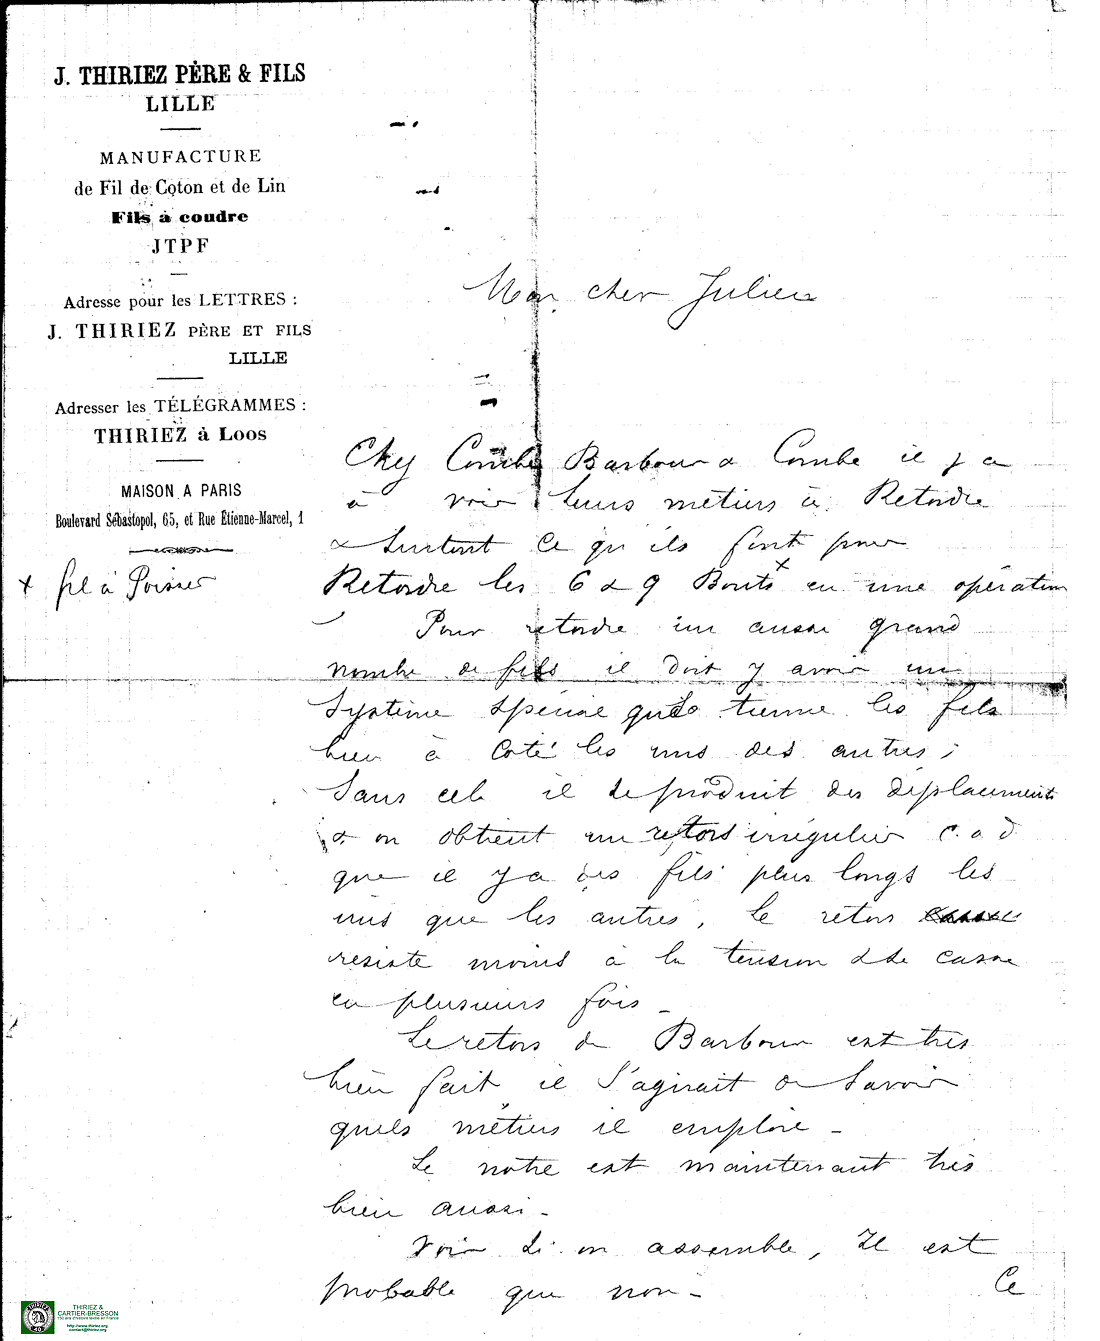 J. THIRIEZ PÈRE & FILS
LILLE
MANUFACTURE
de Fil de Coton et de Lin
Fils à coudre
JTPF
Adresse pour les LETTRES :
J. THIRIEZ PÈRE ET FILS
LILLE
Adresser les TÉLÉGRAMMES :
THIRIEZ à Loos
MAISON A PARIS
Boulevard Sébastopol, 65, et Rue Étienne-Marcel, 1
x fil à Poisser
Mon cher Julien
Chez Combe Barbour & Combe il y a
à voir leurs métiers à Retordre
& Surtout ce qu'ils font pour
Retordre les 6 & 9 Bouts x en une opération
Pour retordre un aussi grand
nombre de fils il doit y avoir un
Système spécial qui tienne les fils
bien à coté les uns des autres ;
Sans cela il se produit des déplacements
& on obtient un retors irrégulier c. a d
que il y a des fils plus longs les
uns que les autres, le retors
resiste moins à la tension & se casse
en plusieurs fois _
Le retors de Barbour est très
bien fait il S'agirait de Savoir
quels métiers il emploie _
Le notre est maintenant très
bien aussi _
Voir Si on assemble, Il est
probable que non _
Ce
THIRIEZ &
CARTIER-BRESSON
150 ans d'histoire textile en France
http://www.thiriez.org
contact@thiriez.org